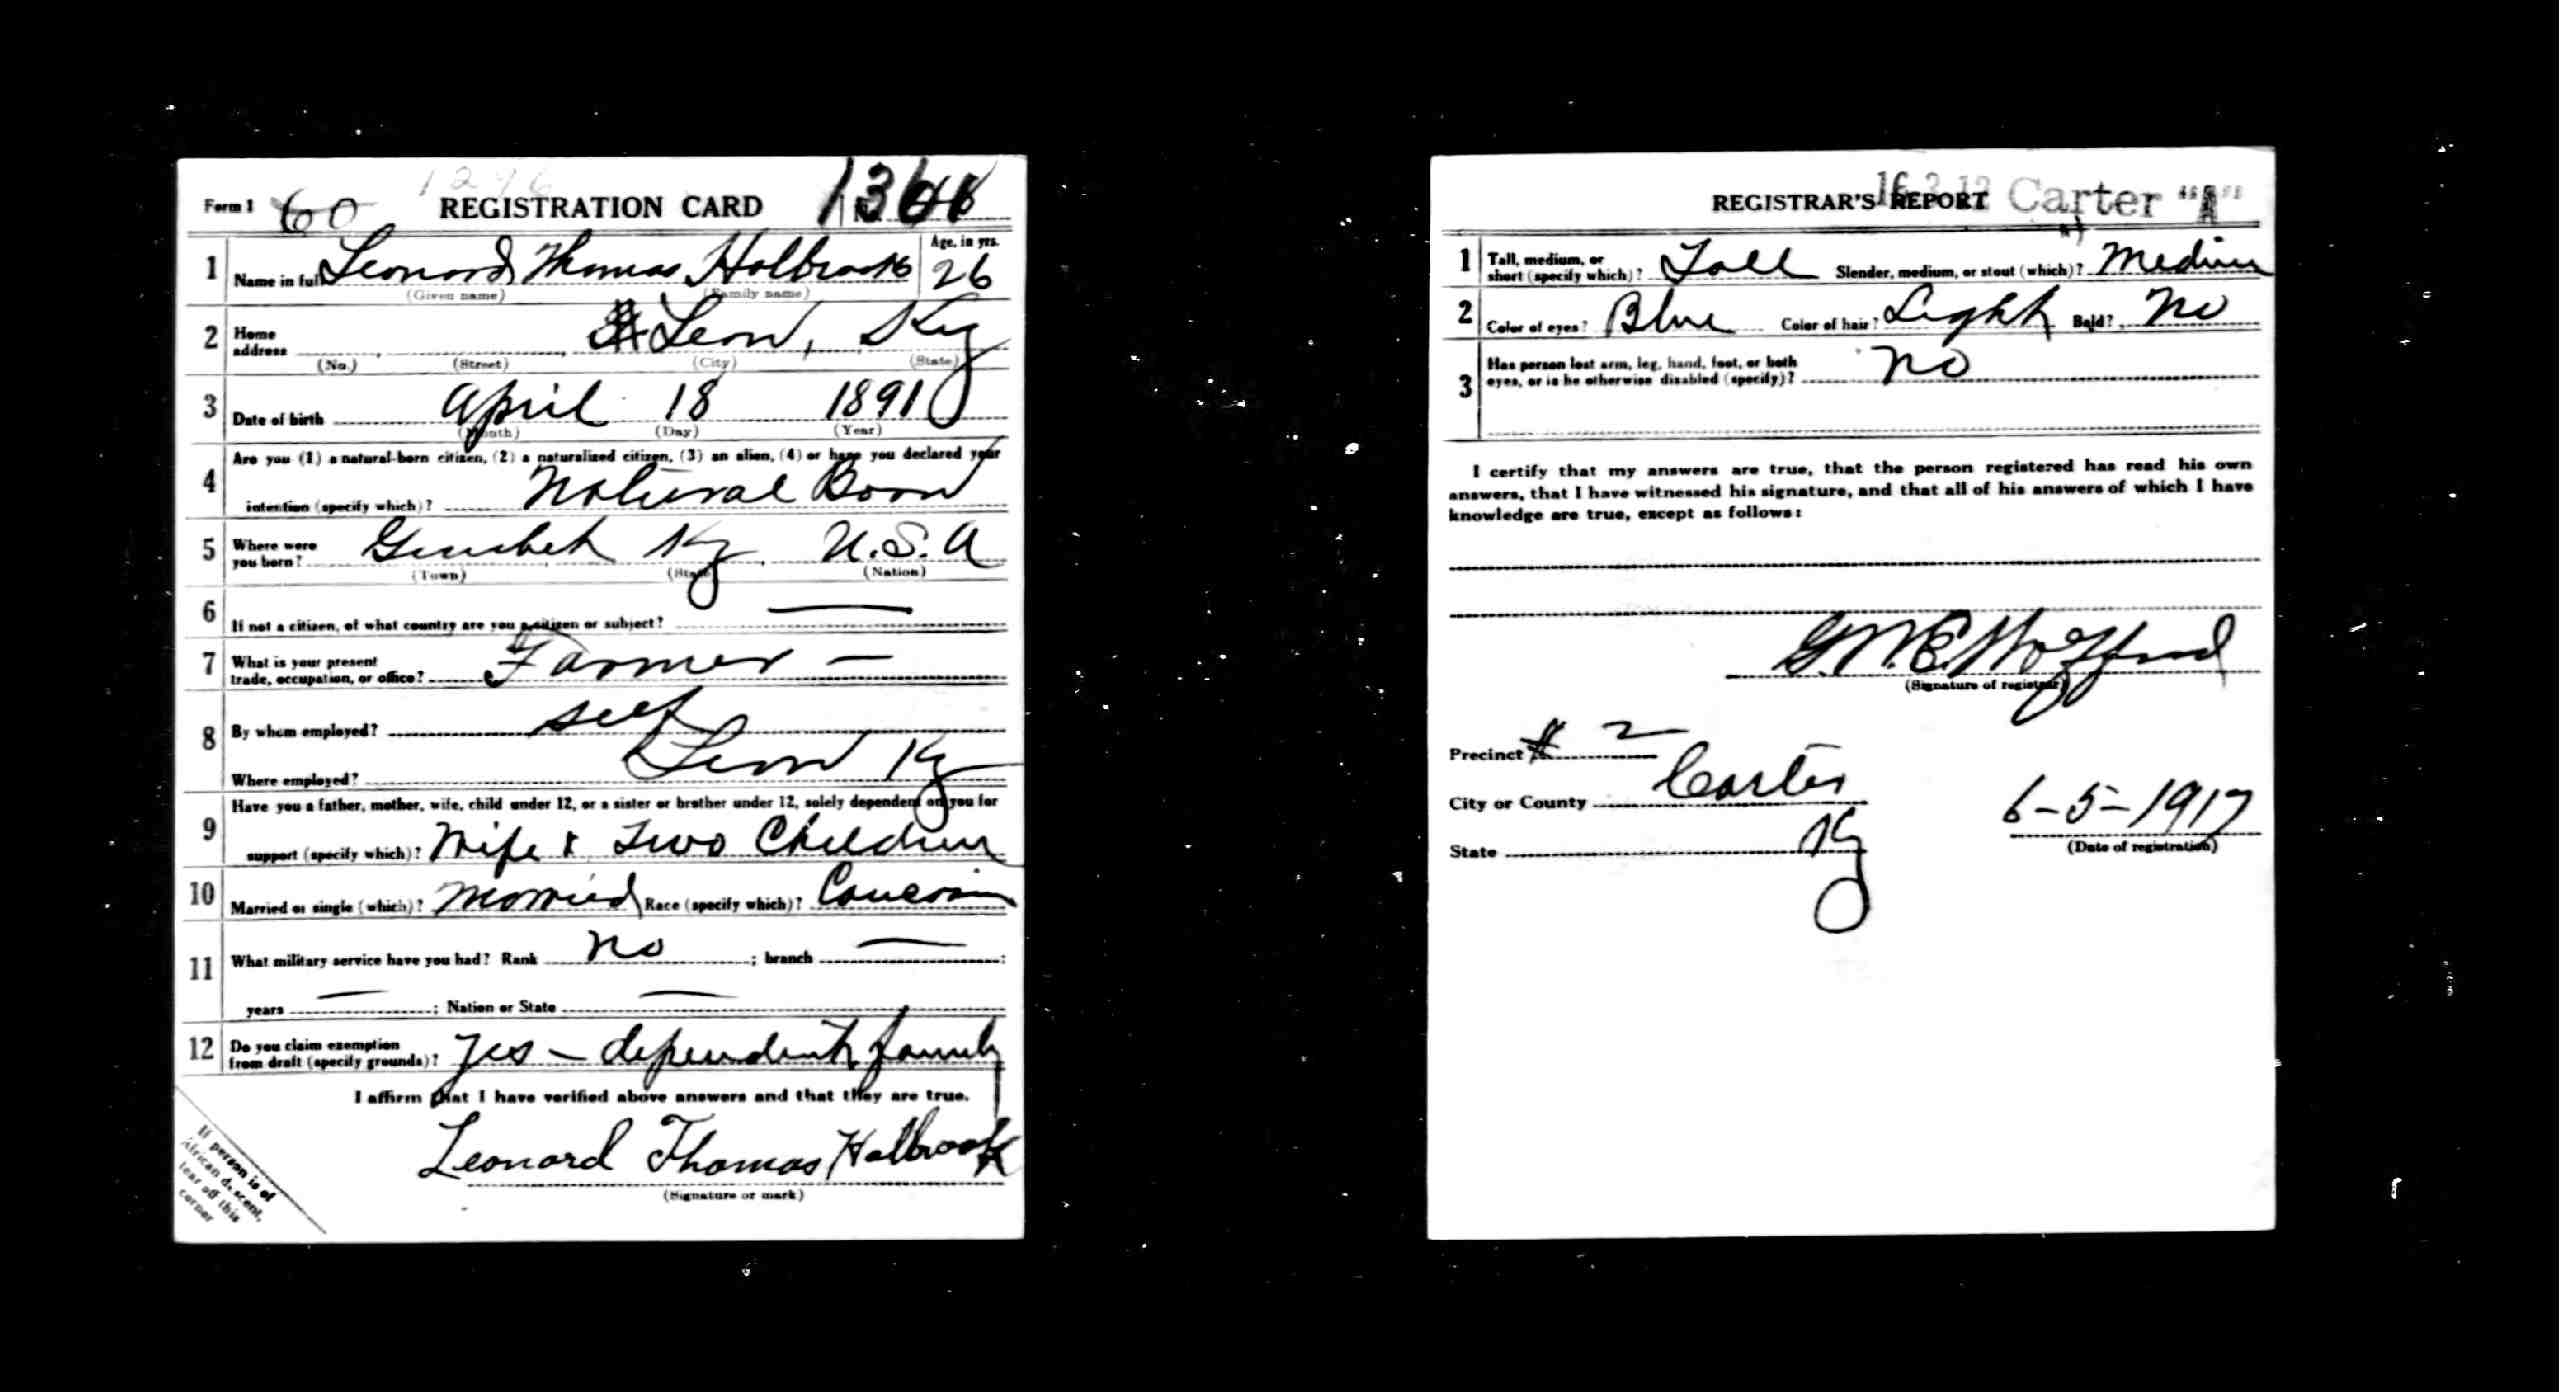 Form 1 60 REGISTRATION CARD
1 Name in full Leonard Thomas Holbrook 26
Age, in yrs.
(Given name) (Family name)
2 Home address Leon, Ky
(No.) (Street) (City) (State)
3 Date of birth April 18 1891
(Month) (Day) (Year)
4 Are you (1) a natural-born citizen, (2) a naturalized citizen, (3) an alien, (4) or have you declared your
intention (specify which)? Natural Born
5 Where were you born? Ky U.S.A
(Town) (State) (Nation)
6 If not a citizen, of what country are you a citizen or subject? —
7 What is your present
trade, occupation, or office? Farmer —
8 By whom employed? self
Where employed? Leon Ky
9 Have you a father, mother, wife, child under 12, or a sister or brother under 12, solely dependent on you for
support (specify which)? Wife & Two Children
10 Married or single (which)? Married Race (specify which)?
11 What military service have you had? Rank No ; branch — ;
years — ; Nation or State —
12 Do you claim exemption
from draft (specify grounds)? Yes — dependent family
I affirm that I have verified above answers and that they are true.
Leonard Thomas Holbrook
(Signature or mark)
If person is of
African descent,
tear off this
corner
REGISTRAR'S REPORT Carter "A"
1 Tall, medium, or
short (specify which)? Tall Slender, medium, or stout (which)? Medium
2 Color of eyes? Blue Color of hair? Light Bald? No
3 Has person lost arm, leg, hand, foot, or both
eyes, or is he otherwise disabled (specify)? No
I certify that my answers are true, that the person registered has read his own
answers, that I have witnessed his signature, and that all of his answers of which I have
knowledge are true, except as follows:
(Signature of registrar)
Precinct # 2
City or County Carter
6-5-1917
State Ky
(Date of registration)